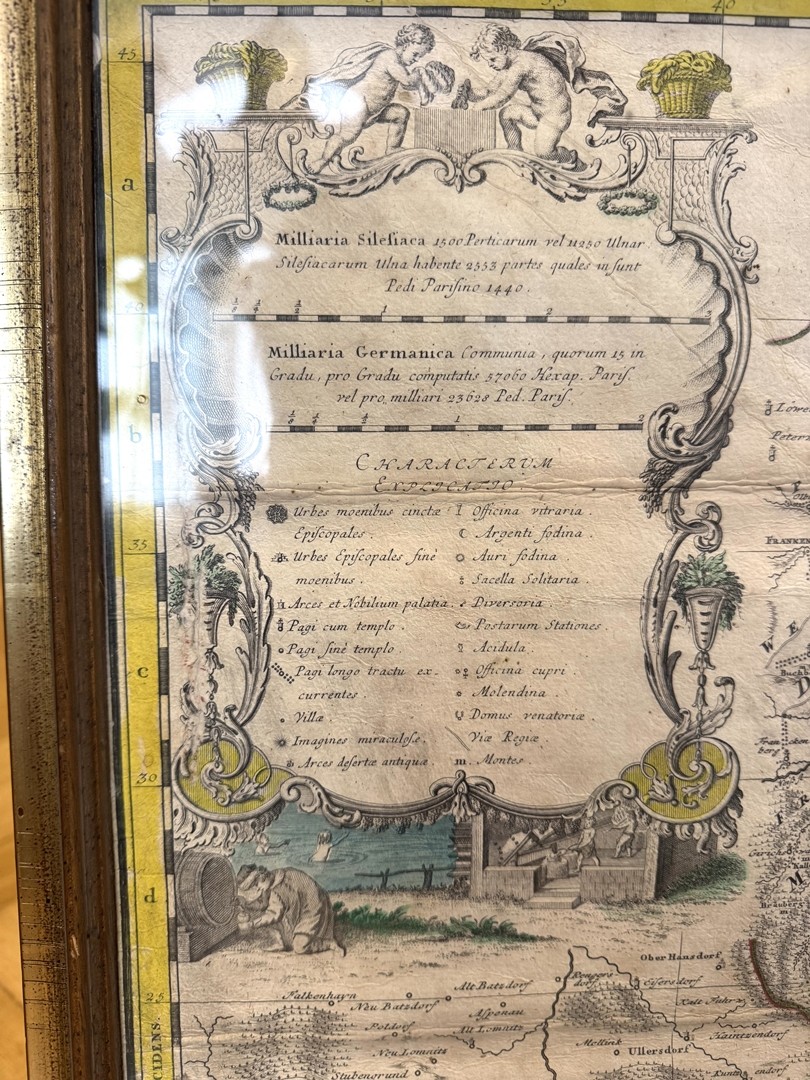 40
45
a
Milliaria Silesiaca 1500 Perticarum vel 11250 Ulnar.
Silesiacarum Ulna habente 2553 partes quales insunt
Pedi Parisino 1440.
1 2 3
Milliaria Germanica Communia, quorum 15 in
Gradu, pro Gradu computatis 57060 Hexap. Paris.
vel pro milliari 23628 Ped. Paris.
1 2
b
CHARACTERVM
EXPLICATIO.
Urbes moenibus cinctæ
Episcopales.
Urbes Episcopales sinè
moenibus.
Arces et Nobilium palatia.
Pagi cum templo.
Pagi sinè templo
Pagi longo tractu ex-
currentes.
Villæ
Imagines miraculosæ.
Arces desertæ antiquæ.
Officina vitraria.
Argenti fodina.
Auri fodina.
Sacella Solitaria.
Diversoria.
Postarum Stationes.
Acidulæ.
Officina cupri.
Molendina.
Domus venatoriæ.
Viæ Regiæ
m. Montes.
35
c
30
d
25
FRANKEN
Ober Hansdorf
Falkenhayn
Alt Batzdorf
Neu Batzdorf
Rengers
dorf
Eisersdorf
Aspenau
Poldorf
Alt Lomnitz
Neu Lomnitz
Mellink
Ullersdorf
Kaintzendorf
Stubengrund
CIDENS.